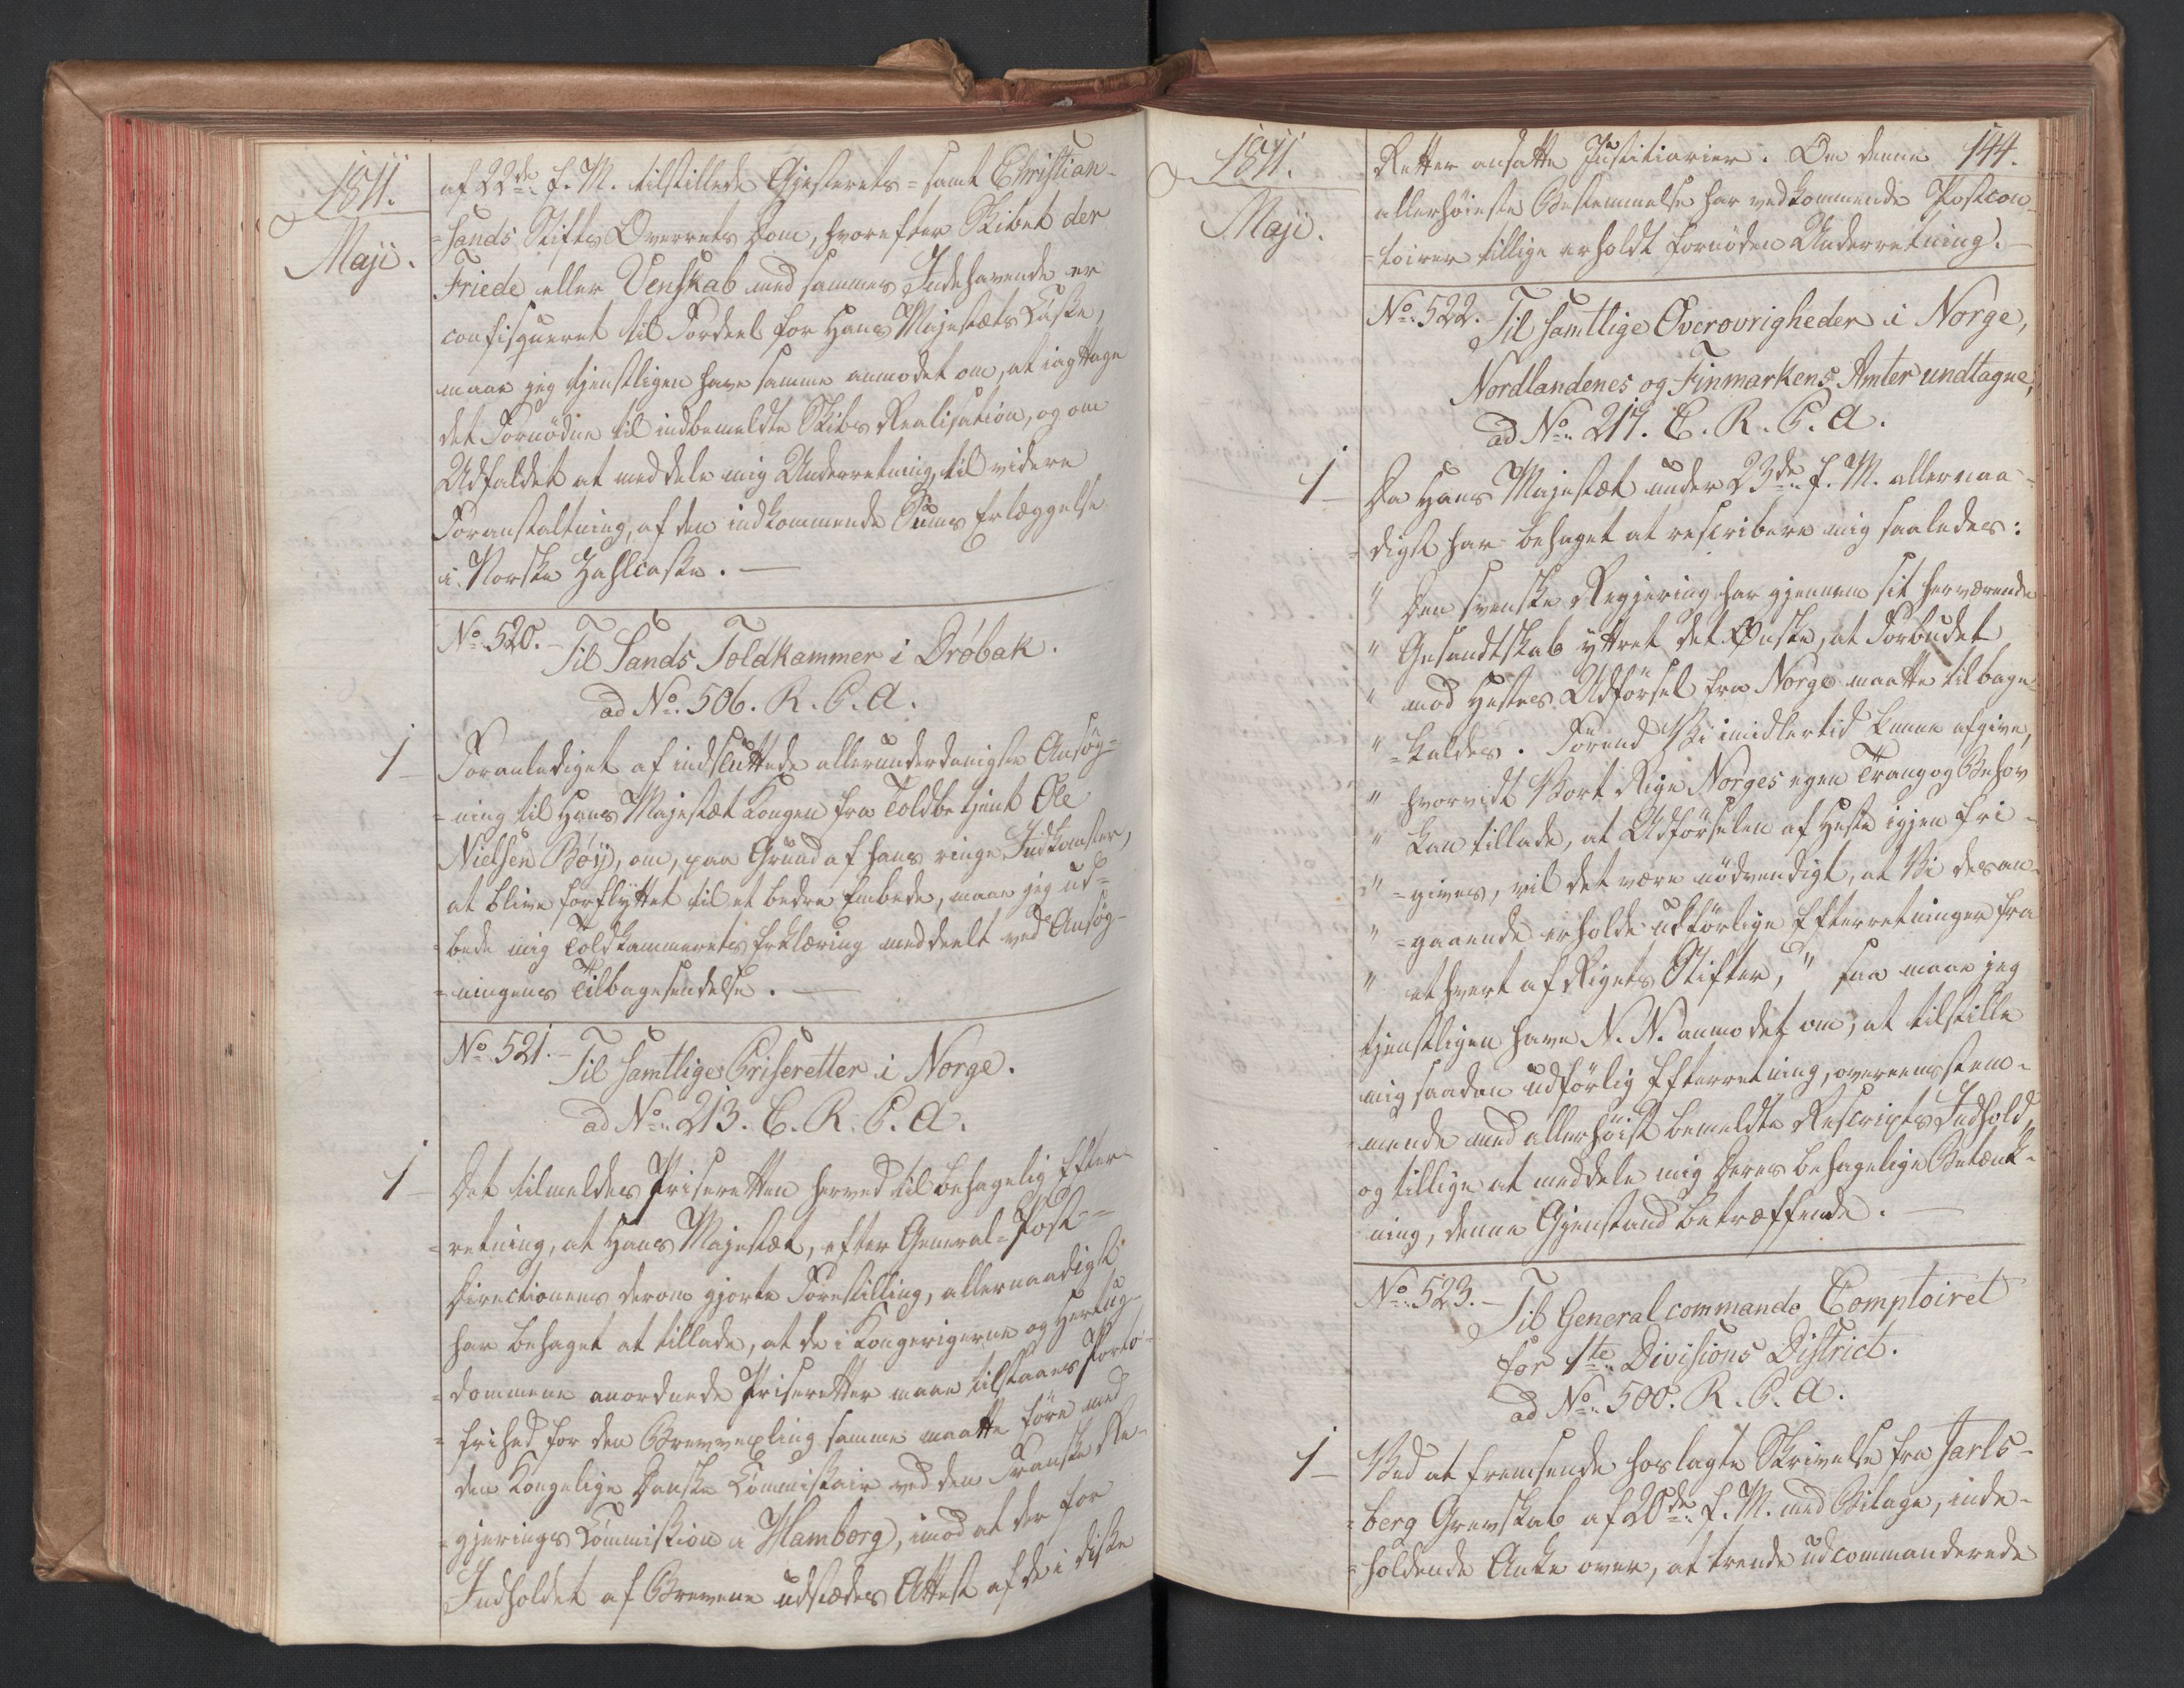 1811.
Maji.
af 22de f. M. tilstillede Gjesterets- samt Christian-
=sands Stifts Overrets Dom, hvorefter Skibet der
Friede eller Venskab med sammes Indehavende er
confisqueret til Fordeel for Hans Majestæts Kasse,
maae jeg tjenstligen have samme anmodet om, at iagttage
det Fornødne til indbemeldte Skibs Realisation, og om
Udfaldet at meddele mig Underretning, til videre
Foranstaltning, af den indkommende Sums Erlæggelse
i Norske Zahlcasse. —
No. 520. - Til Sands Toldkammer i Dröbak.
ad No. 506. R. P. A.
1 —
Foranlediget af indsluttede allerunderdanigste Ansøg-
=ning til Hans Majestæt Kongen fra Toldbetjent Ole
Nielsen Böy, om, paa Grund af hans ringe Indkomster,
at blive forflyttet til et bedre Embede, maae jeg ud-
=bede mig Toldkammerets Erklæring meddeelt ved Ansøg-
=ningens Tilbagesendelse. —
No. 521. - Til samtlige Priseretter i Norge.
ad No. 213. C. R. P. A.
1 —
Det tilmeldes Priseretten herved til behagelig Efter-
=retning, at Hans Majestæt, efter General-Post-
Directionens derom gjorte Forestilling, allernaadigst
har behaget at tillade, at de i Kongerigerne og Hertug-
=dommene anordnede Priseretter maae tilstaaes Porto-
=frihed for den Brevvexling samme maatte före med
den Kongelige Danske Commissair ved den Franske Re-
=gjerings Commission i Hamborg, imod at der for
Indholdet af Brevene udstædes Attest af de i disse
1811.
Maji.
144.
Retter ansatte Justitiarier. Om denne
allerhöieste Bestemmelse har vedkommende Postcon-
=toirer tillige erholdt fornöden Underretning. —
No. 522. - Til samtlige Overøvrigheder i Norge,
Nordlandenes og Finmarkens Amter undtagne,
ad No. 217. C. R. P. A.
1 —
Da Hans Majestæt under 23de f. M. allernaa-
=digst har behaget at rescribere mig saaledes:
" Den svenske Regjering har gjennem sit herværende
" Gesandtskab yttret det Önske, at Forbudet
" mod Hestes Udförsel fra Norge maatte tilbage-
" =kaldes. Förend Vi imidlertid kunne afgive,
" hvorvidt Vort Rige Norges egen Trang og Behov
" kan tillade, at Udförselen af Heste igjen fri-
" =gives, vil det være nödvendigt, at Vi desan-
" =gaaende erholde udförlige Efterretninger fra
" ethvert af Rigets Stifter," saa maae jeg
tjenstligen have N. N. anmodet om, at tilstille
mig saadan udförlig Efterretning, overeensstem-
=mende med allerhöist bemeldte Rescripts Indhold,
og tillige at meddele mig Deres behagelige Betænk-
=ning, denne Gjenstand betræffende. —
No. 523. - Til Generalcommando Comptoiret
for 1te Divisions District.
ad No. 500. R. P. A.
1 —
Ved at fremsende hoslagte Skrivelse fra Jarls-
=berg Grevskab af 20de f. M. med Bilage, inde-
=holdende Anke over, at trende udcommanderede